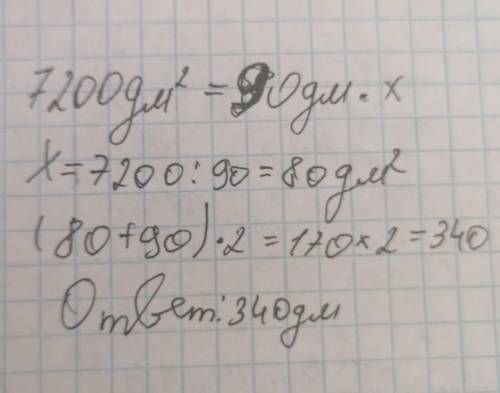 7200дм² = 90дм · x
X = 7200 : 90 = 80дм²
(80+90) · 2 = 170 × 2 = 340
Ответ: 340дм